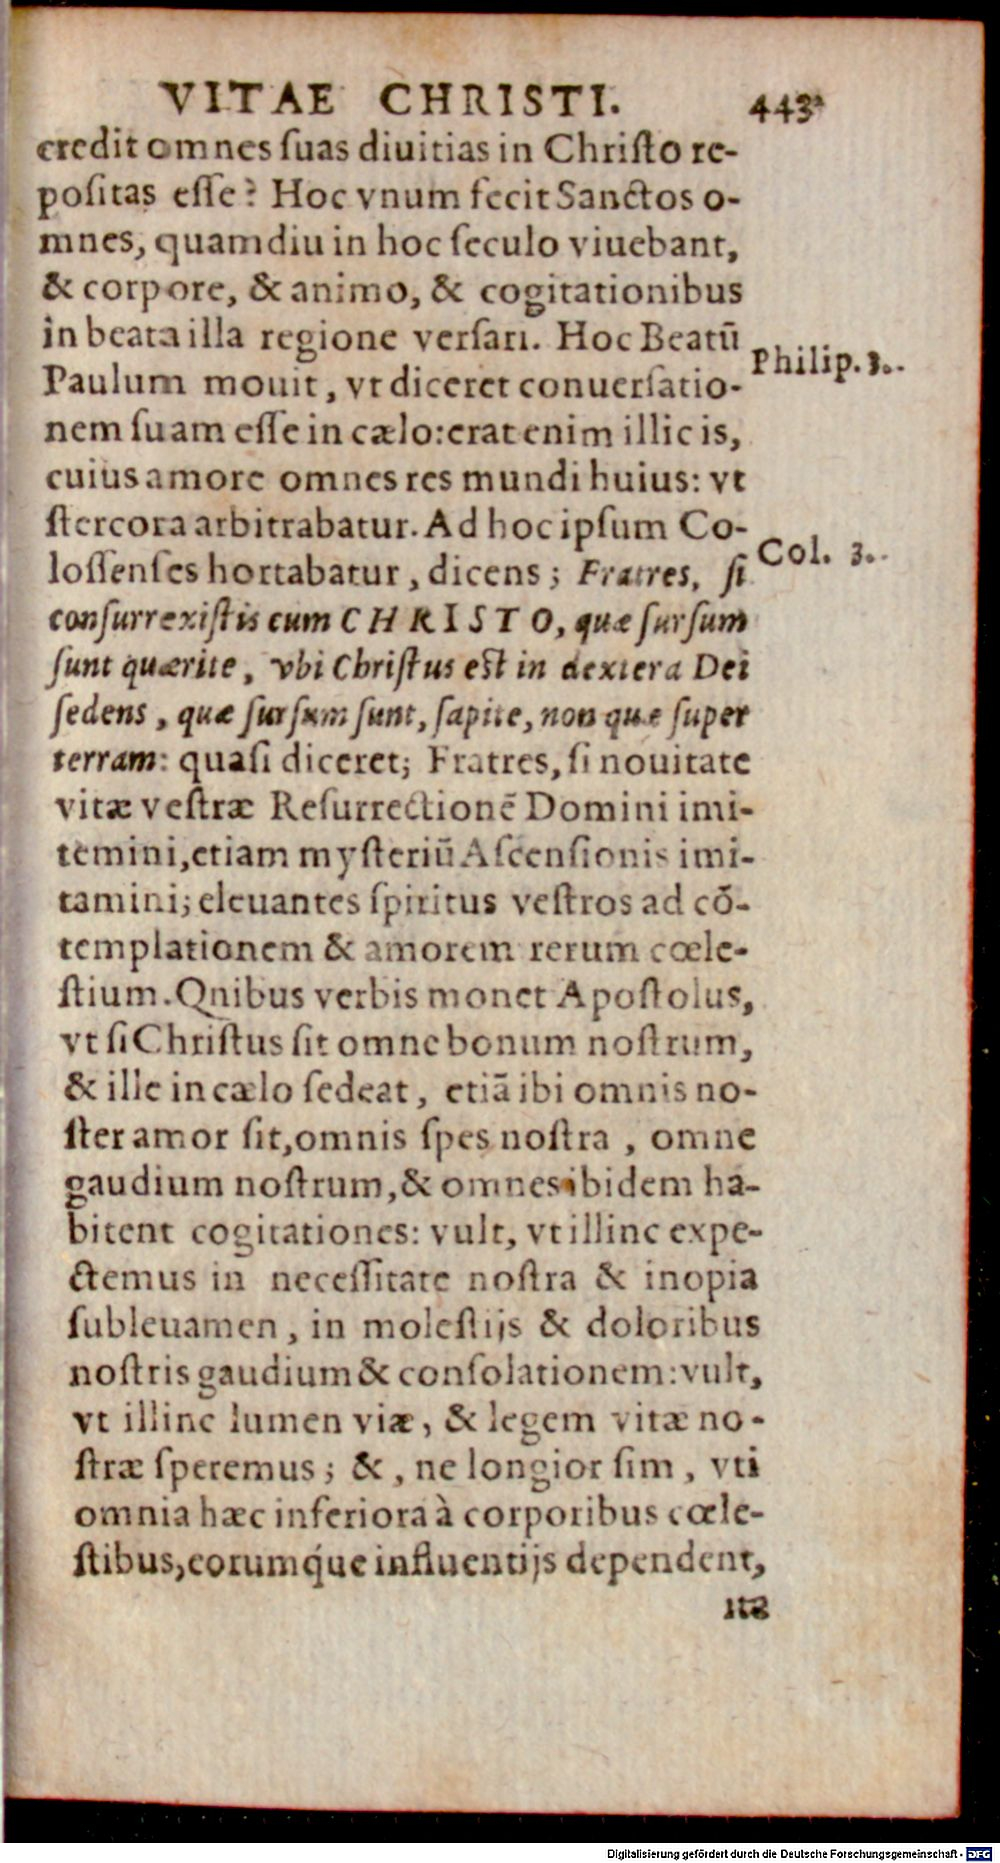 VITAE CHRISTI. 443
credit omnes ſuas diuitias in Chriſto re-
poſitas eſſe? Hoc vnum fecit Sanctos o-
mnes, quamdiu in hoc ſeculo viuebant,
& corpore, & animo, & cogitationibus
in beata illa regione verſari. Hoc Beatū
Philip. 3.
Paulum mouit, vt diceret conuerſatio-
nem ſuam eſſe in cælo: erat enim illic is,
cuius amore omnes res mundi huius: vt
ſtercora arbitrabatur. Ad hoc ipſum Co-
Col. 3.
loſſenſes hortabatur, dicens; Fratres, ſi
conſurrexiſtis cum CHRISTO, quæ ſurſum
ſunt quærite, vbi Chriſtus eſt in dextera Dei
ſedens, quæ ſurſum ſunt, ſapite, non quæ ſuper
terram: quaſi diceret; Fratres, ſi nouitate
vitæ veſtræ Reſurrectionē Domini imi-
temini, etiam myſteriū Aſcenſionis imi-
tamini; eleuantes ſpiritus veſtros ad cō-
templationem & amorem rerum cœle-
ſtium. Qnibus verbis monet Apoſtolus,
vt ſi Chriſtus ſit omne bonum noſtrum,
& ille in cælo ſedeat, etiā ibi omnis no-
ſter amor ſit, omnis ſpes noſtra, omne
gaudium noſtrum, & omnes ibidem ha-
bitent cogitationes: vult, vt illinc expe-
ctemus in neceſſitate noſtra & inopia
ſubleuamen, in moleſtijs & doloribus
noſtris gaudium & conſolationem: vult,
vt illinc lumen viæ, & legem vitæ no-
ſtræ ſperemus; &, ne longior ſim, vti
omnia hæc inferiora à corporibus cœle-
ſtibus, eorumq́ue influentijs dependent,
ita
Digitalisierung gefördert durch die Deutsche Forschungsgemeinschaft - DFG